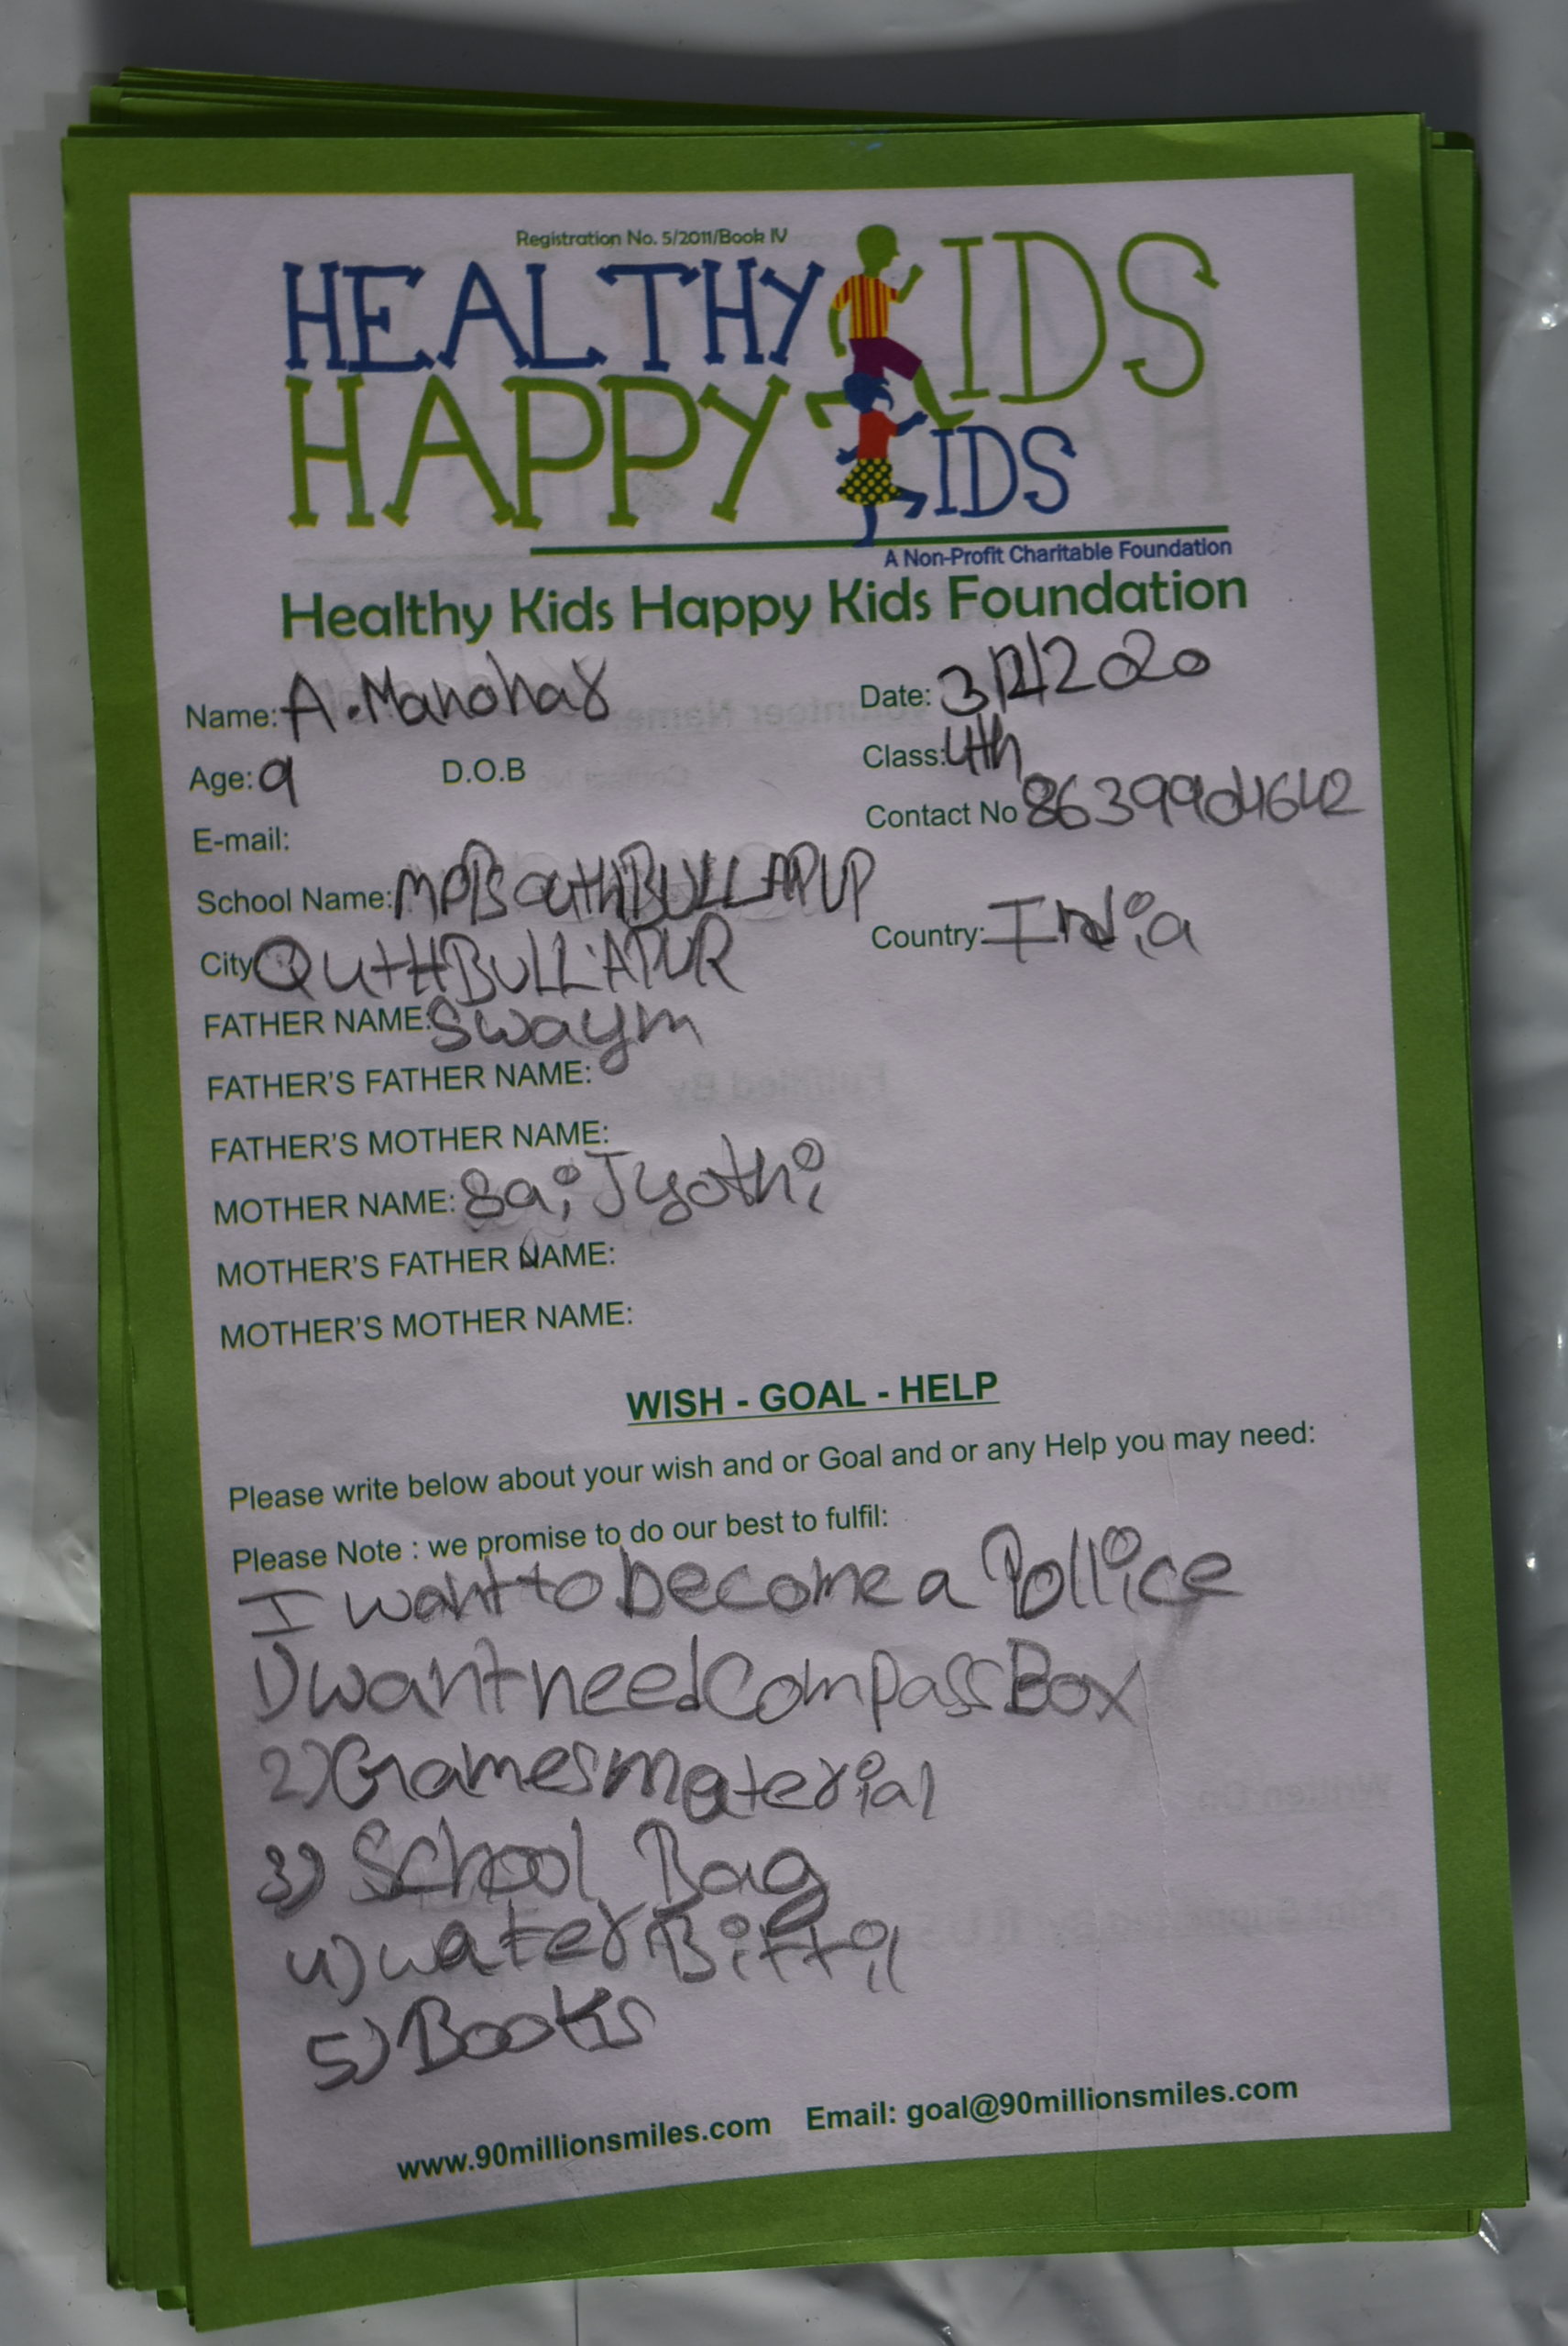 Registration No. 5/2011/Book IV
HEALTHY KIDS
HAPPY KIDS
A Non-Profit Charitable Foundation
Healthy Kids Happy Kids Foundation
Name: A. Manohar Date: 3/2/2020
Age: 9 D.O.B Class: 4th
E-mail: Contact No 8639904642
School Name: MPPS OuthBULLAPUP
City QUtHBULLAPUR Country: India
FATHER NAME: Swaym
FATHER'S FATHER NAME:
FATHER'S MOTHER NAME:
MOTHER NAME: Sai Jyothi
MOTHER'S FATHER NAME:
MOTHER'S MOTHER NAME:
WISH - GOAL - HELP
Please write below about your wish and or Goal and or any Help you may need:
Please Note : we promise to do our best to fulfil:
I want to become a Pollice
1) want need Compass Box
2) Games material
3) School Bag
4) water Bittil
5) Books
www.90millionsmiles.com Email: goal@90millionsmiles.com